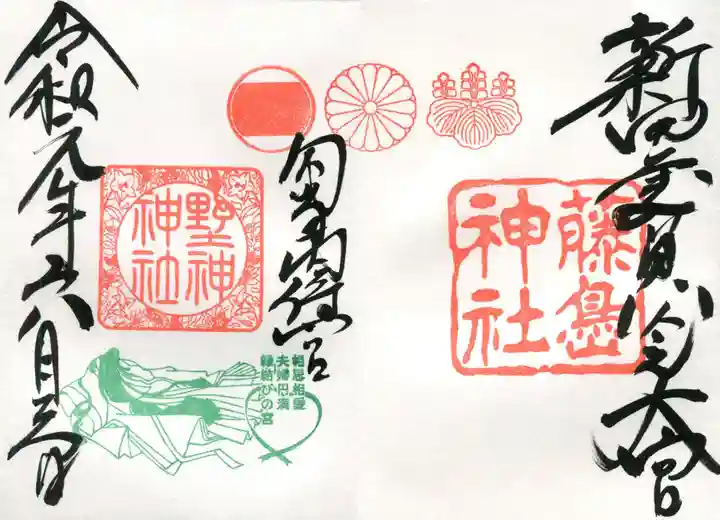 新田義貞公大宮
藤島
神社
勾当内侍宮
野神
神社
相思相愛
夫婦円満
縁結びの宮
令和元年六月